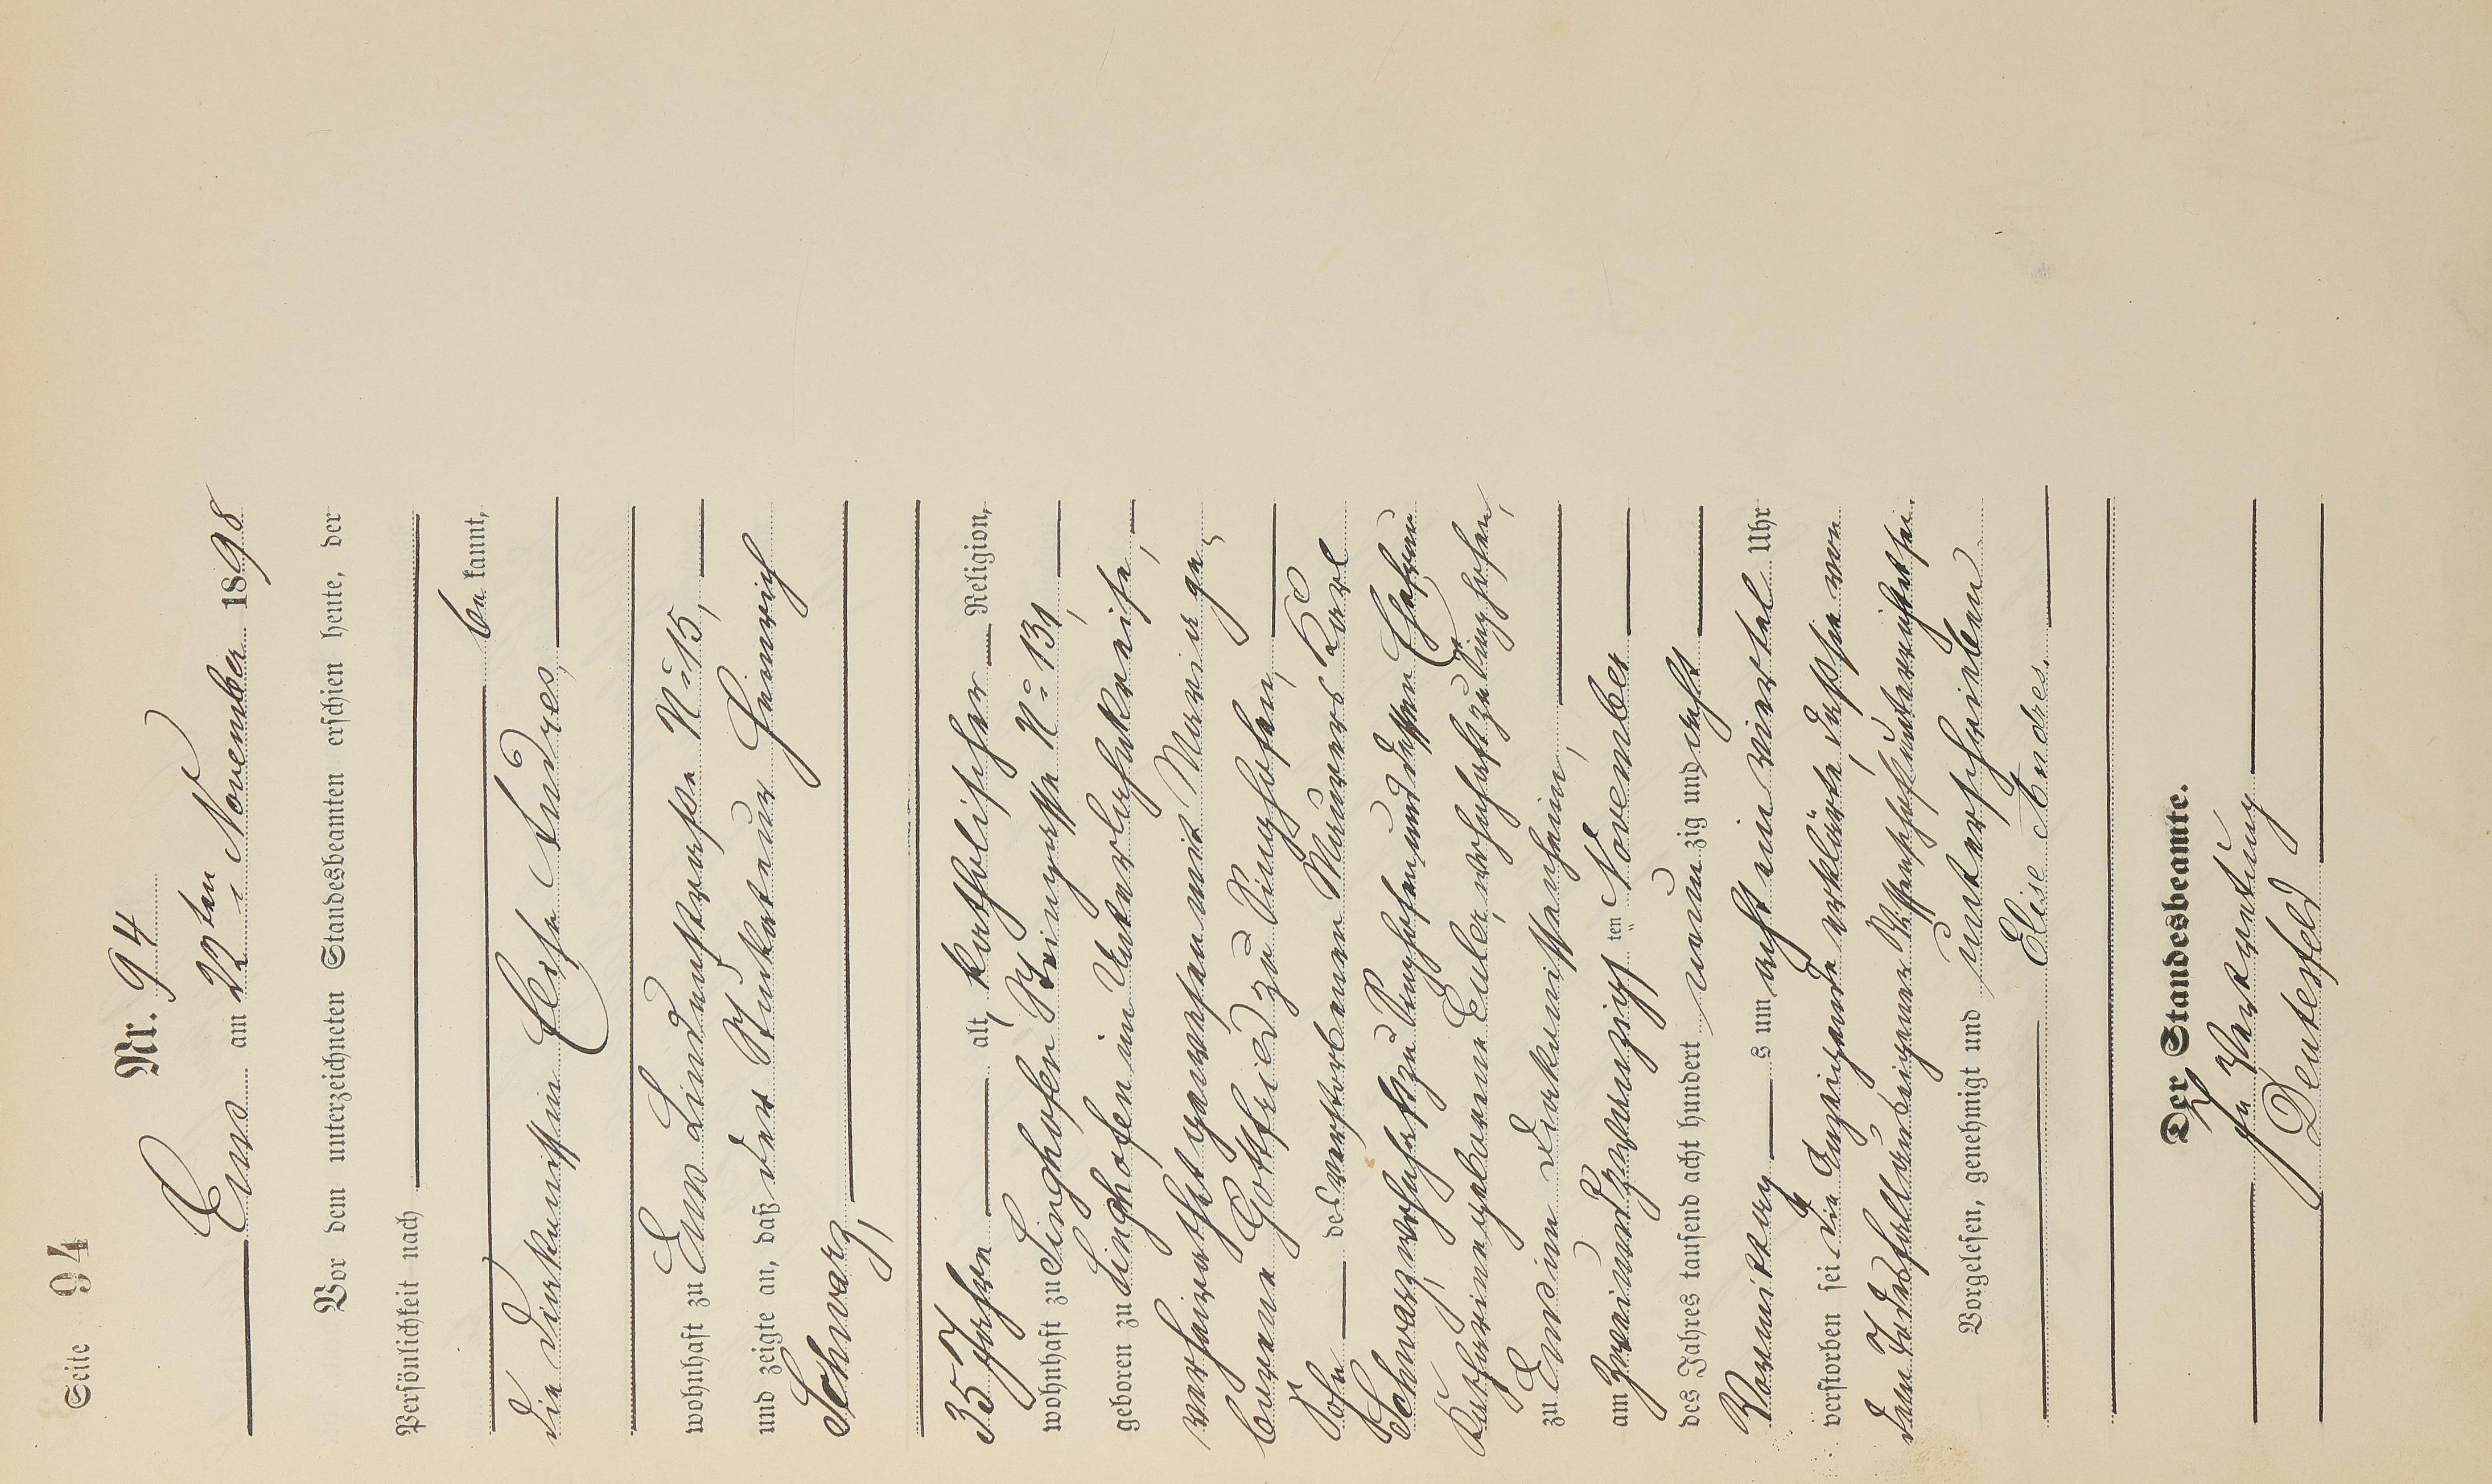 Seite 94
Nr. 94
Ems am 22ten November 1898
Vor dem unterzeichneten Standesbeamten erschien heute, der
Persönlichkeit nach
be kannt,
die Diakonissin Elise Endres,
wohnhaft zu Ems Lindenstrasse No 15,
und zeigte an, daß der Stukateur Heinrich
Schwarz,
35 Jahre alt, katholischer Religion,
wohnhaft zu Singhofen No 131,
geboren zu Singhofen im Unterlahnkreise,
verheirathet gewesen mit Maria ge,
borene Gottfried zu Singhofen,
Sohn des verstorbenen Maurers Karl
Schwarz, wohnhaft zu Singhofen und dessen Ehefrau
Katharina geborene Euler, wohnhaft zu Singhofen,
zu Ems im Diakonissenheim,
am zweiundzwanzigsten November
des Jahres tausend acht hundert neunzig und acht
Vormittags um acht ein viertel Uhr
verstorben sei. Die Anzeigende erklärte, daß sie von
dem Todesfall aus eigener Wissenschaft unterrichtet sei.
Vorgelesen, genehmigt und unterschrieben
Elise Endres.
Der Standesbeamte.
In Vertretung
Deutesfeld